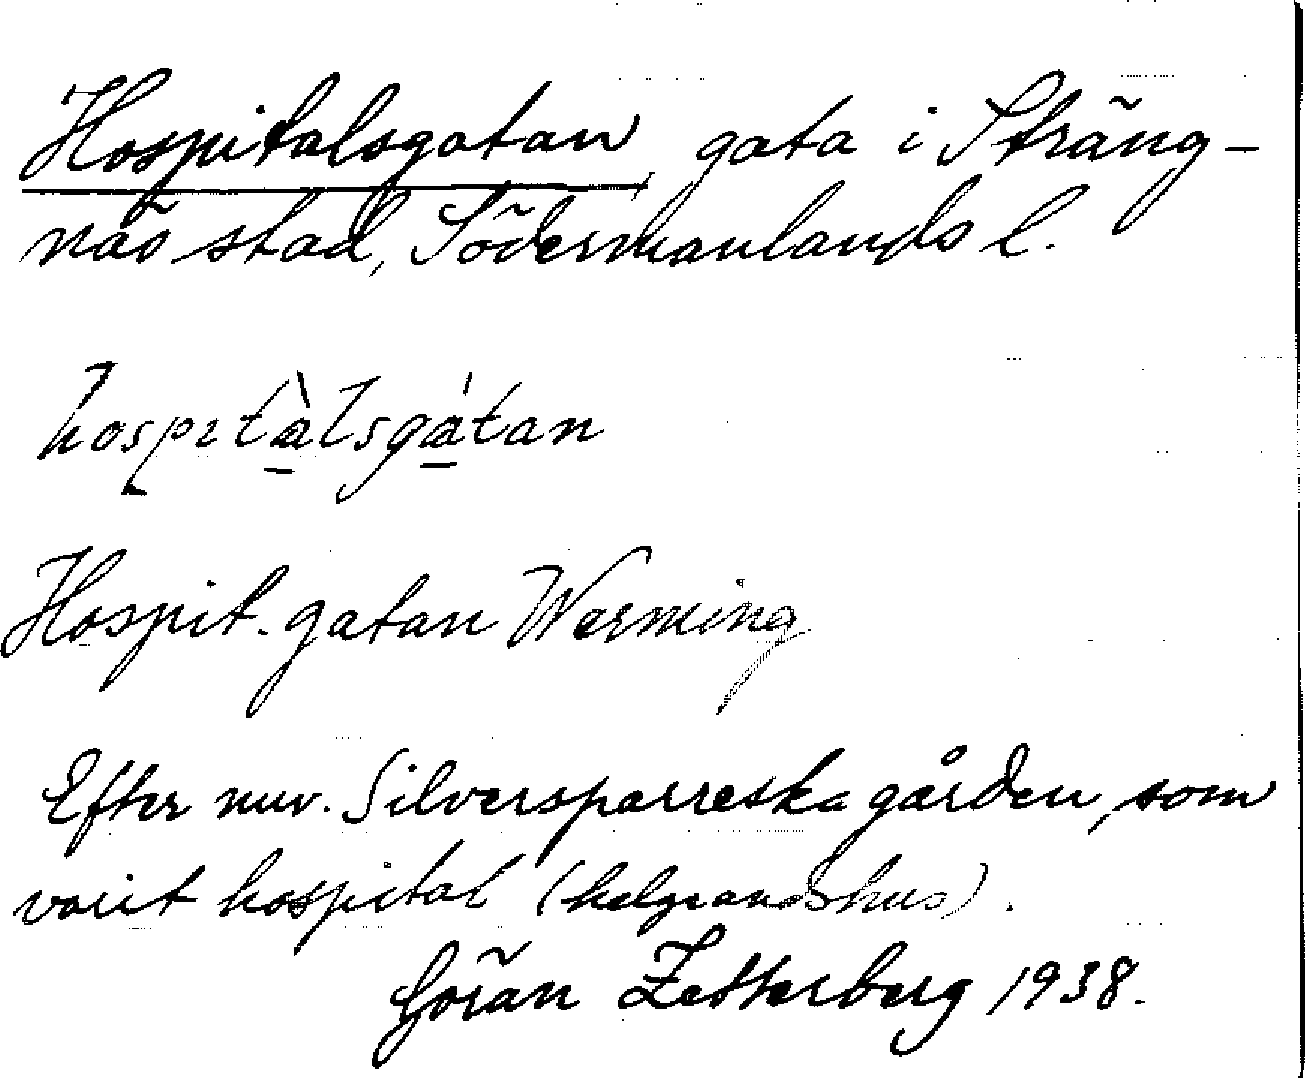 Hospitalsgatan, gata i Sträng-
näs stad, Södermanlands l.
hospitàlsgátan
Hospit. gatan Werming
Efter nuv. Silversparreska gården, som
varit hospital (helgeandshus).
Göran Zetterberg 1938.